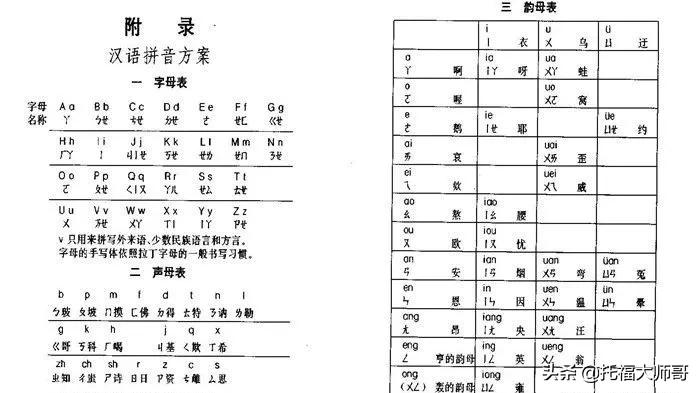 附 录
汉语拼音方案
一 字母表
字母 Aa Bb Cc Dd Ee Ff Gg
名称 ㄚ ㄅㄝ ㄘㄝ ㄉㄝ ㄜ ㄝㄈ ㄍㄝ
Hh Ii Jj Kk Ll Mm Nn
ㄏㄚ ㄧ ㄐㄧㄝ ㄎㄝ ㄝㄌ ㄝㄇ ㄋㄝ
Oo Pp Qq Rr Ss Tt
ㄛ ㄆㄝ ㄑㄧㄡ ㄚㄦ ㄝㄙ ㄊㄝ
Uu Vv Ww Xx Yy Zz
ㄨ ㄪㄝ ㄨㄚ ㄒㄧ ㄧㄚ ㄗㄝ
v 只用来拼写外来语、少数民族语言和方言。
字母的手写体依照拉丁字母的一般书写习惯。
二 声母表
b p m f d t n l
ㄅ玻 ㄆ坡 ㄇ摸 ㄈ佛 ㄉ得 ㄊ特 ㄋ讷 ㄌ勒
g k h j q x
ㄍ哥 ㄎ科 ㄏ喝 ㄐ基 ㄑ欺 ㄒ希
zh ch sh r z c s
ㄓ知 ㄔ蚩 ㄕ诗 ㄖ日 ㄗ资 ㄘ雌 ㄙ思
三 韵母表
i u ü
ㄧ 衣 ㄨ 乌 ㄩ 迂
a ia ua
ㄚ 啊 ㄧㄚ 呀 ㄨㄚ 蛙
o uo
ㄛ 喔 ㄨㄛ 窝
e ie üe
ㄜ 鹅 ㄧㄝ 耶 ㄩㄝ 约
ai uai
ㄞ 哀 ㄨㄞ 歪
ei uei
ㄟ 欸 ㄨㄟ 威
ao iao
ㄠ 熬 ㄧㄠ 腰
ou iou
ㄡ 欧 ㄧㄡ 忧
an ian uan üan
ㄢ 安 ㄧㄢ 烟 ㄨㄢ 弯 ㄩㄢ 冤
en in uen ün
ㄣ 恩 ㄧㄣ 因 ㄨㄣ 温 ㄩㄣ 晕
ang iang uang
ㄤ 昂 ㄧㄤ 央 ㄨㄤ 汪
eng ing ueng
ㄥ 亨的韵母 ㄧㄥ 英 ㄨㄥ 翁
ong iong
(ㄨㄥ) 轰的韵母 ㄩㄥ 雍
头条 @托福大师哥